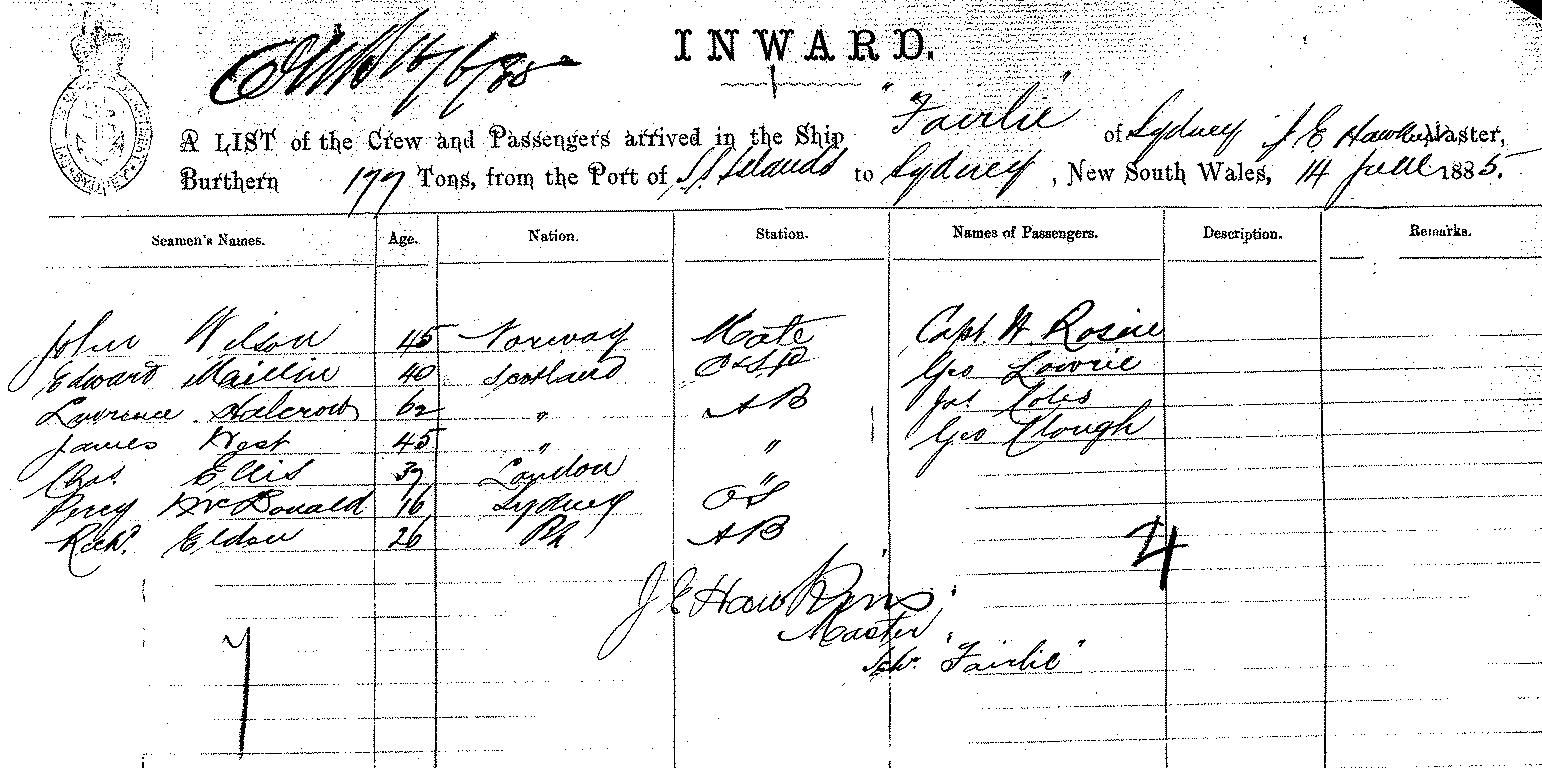 INWARD.
16/6/85
A LIST of the Crew and Passengers arrived in the Ship "Fairlie" of Sydney J E Hawkins Master,
Burthern 177 Tons, from the Port of S S Islands to Sydney, New South Wales, 14 June 1885.
Seamen's Names. Age. Nation. Station. Names of Passengers. Description. Remarks.
John Wilson 45 Norway Mate Capt. H Rosine
Edward 40 Scotland Geo Lowrie
Lawrence Halcrow 62 " AB Jas Coles
James West 45 " " Geo Clough
Chas. Ellis 37 London "
Percy McDonald 16 Sydney OS
Richd. Eldon 26 AB
4
J E Hawkins
Master
Schr. "Fairlie"
7